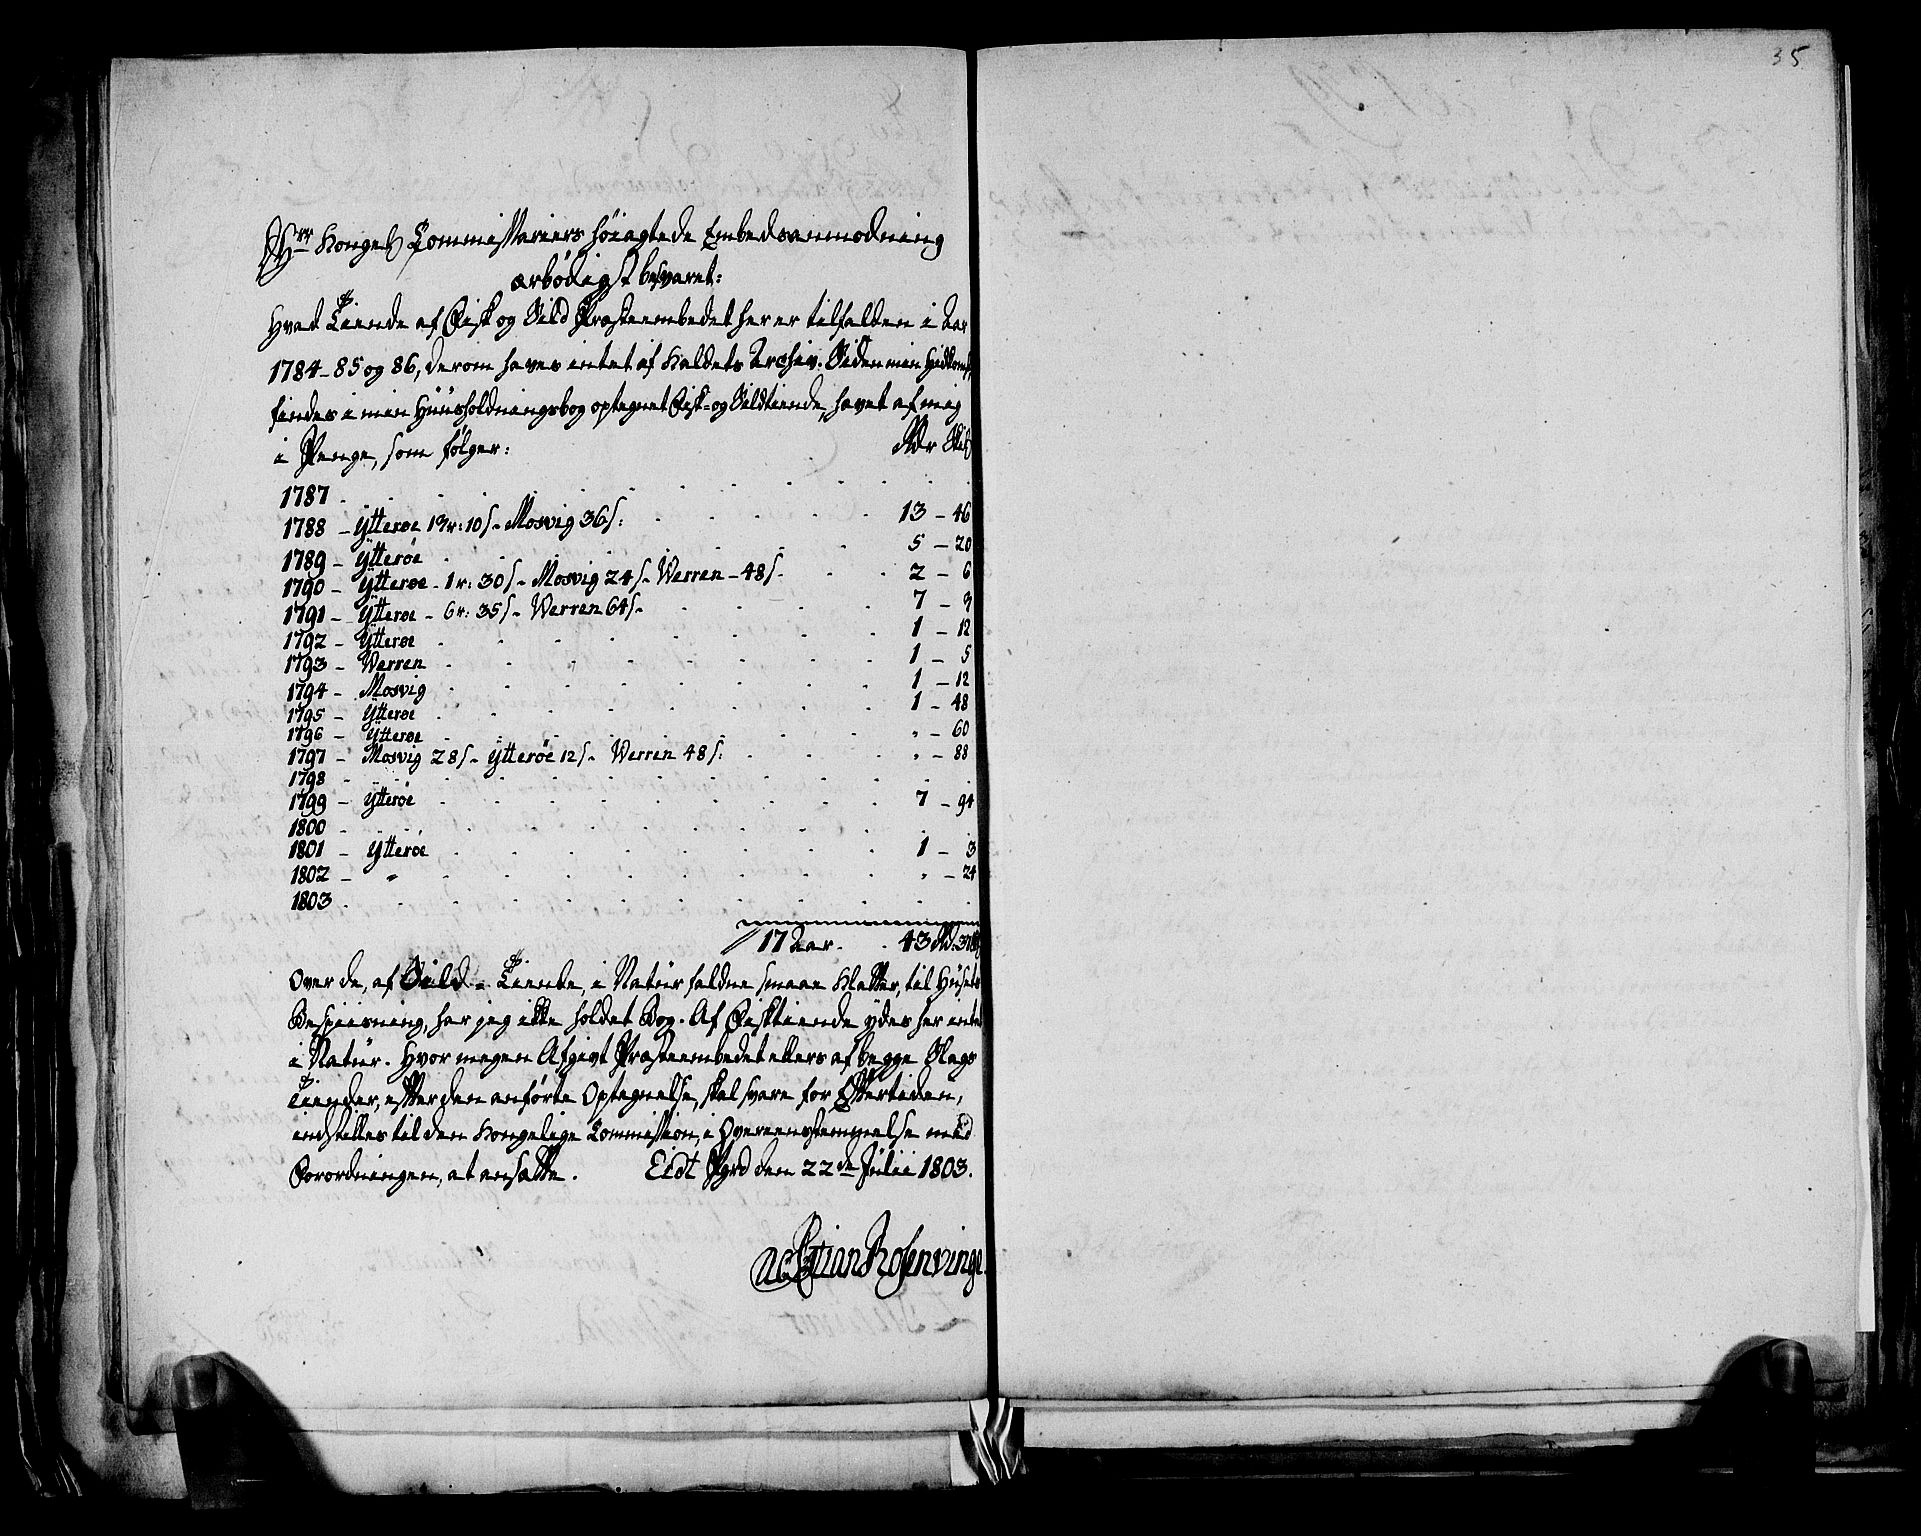 35
Hrr Kongel. Commissariers høiagtede Embedsanmodning
ærbødigst besvaret:
Hvad Tiende af Fisk og Sild Præsteembedet her er tilfalden i Aar
1784-85 og 86, derom haves intet af Kaldets Archiv. Siden min Hidkomst,
findes i min Huusholdningsbog optegnet Fisk- og Sildtiende, havet af mig
i Penge, som følger: Rdr Skil
1787
1788 - Ytterøe 13r: 10s - Mosvig 36s: 13 - 46
1789 - Ytterøe 5 - 20
1790 - Ytterøe - 1r: 30s - Mosvig 24s - Werren - 48s - 2 - 6
1791 - Ytterøe - 6r: 35s - Werren 64s - 7 - 3
1792 - Ytterøe 1 - 12
1793 - Werren 1 - 5
1794 - Mosvig 1 - 12
1795 - Ytterøe 1 - 48
1796 - Ytterøe " - 60
1797 - Mosvig 28s - Ytterøe 12s - Werren 48s: " - 88
1798
1799 - Ytterøe 7 - 94
1800
1801 - Ytterøe 1 - 3
1802 - " " - 24
1803
17 Aar. 43 Rd: 37
Over de, af Sild-Tiende, i Natur faldne smaae Kletter, til Husets
Bespiisning, har jeg ikke holdet Bog. Af Fisktiende ydes her intet
i Natur. Hvor megen Afgivt Præsteembedet ellers af begge Slags
Tiender, efter den anførte Optegnelse, skal svare for Eftertiden,
indstilles til den Kongelige Commission, i Overeensstemmelse med
Forordningen, at ansætte. Eidt Pgrd den 22de Julii 1803.
Rosenvinge.